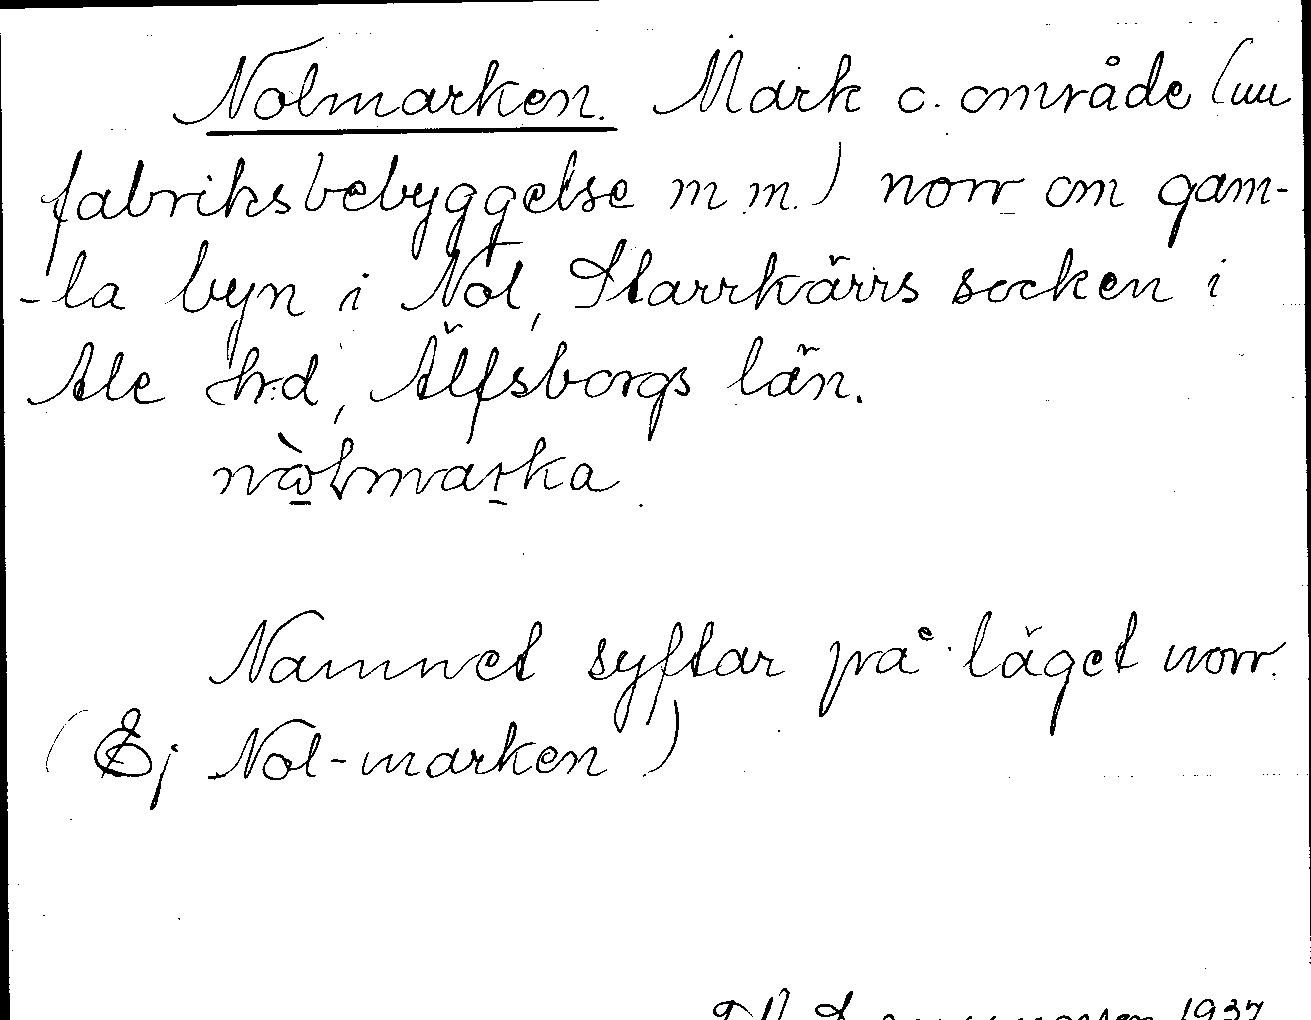 Nolmarken. Mark o. område (nu
fabriksbebyggelse m m.) norr om gam-
-la byn i Nol, Starrkärrs socken i
Ale hrd, Älfsborgs län.
nò̱lmarka
Namnet syftar på läget norr.
(Ej Nol-marken)
1937